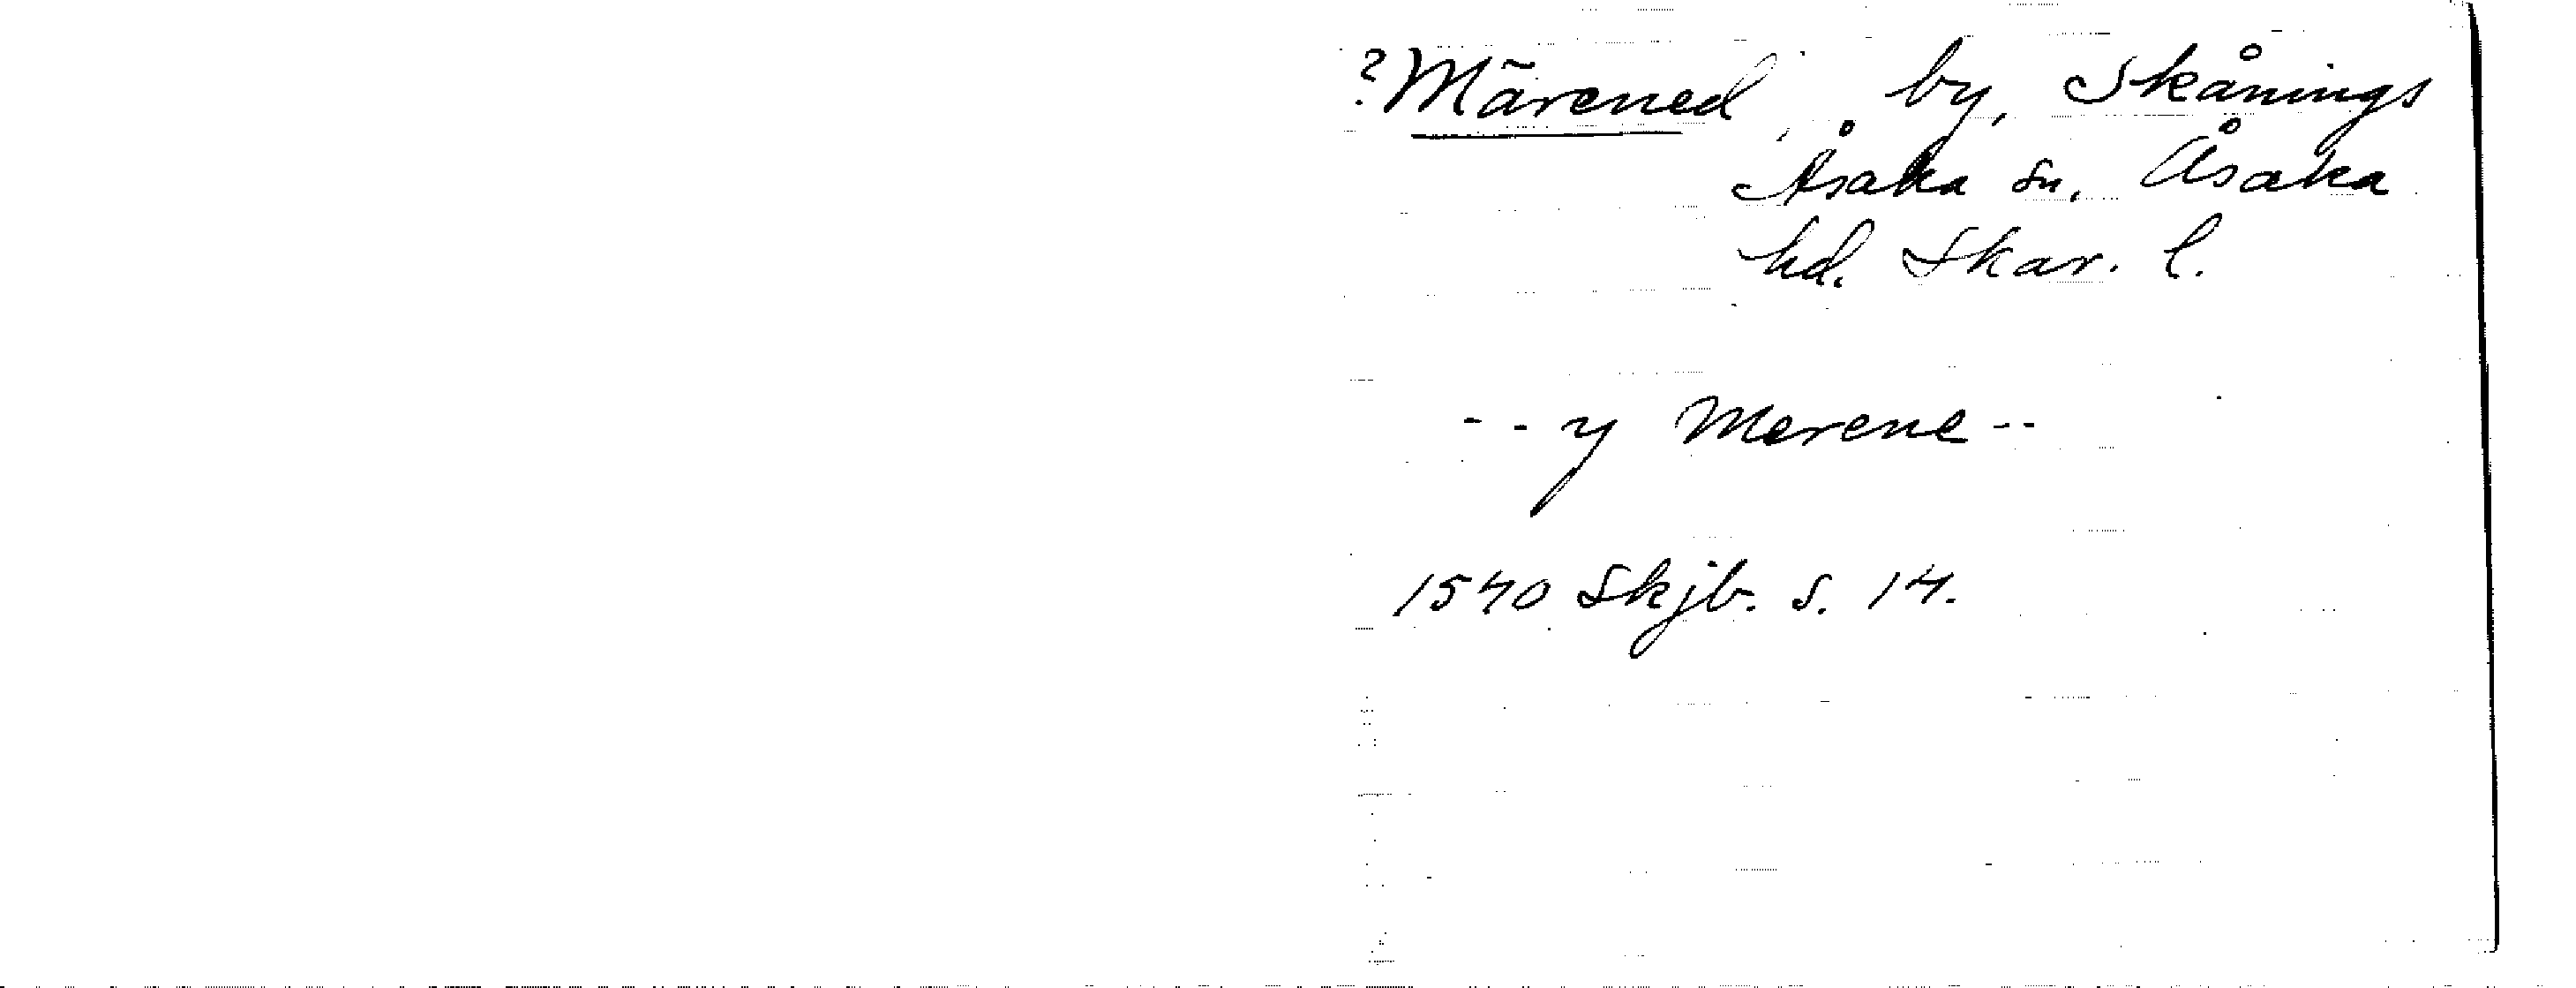 ? Märened, by, Skånings
Åsaka sn. Åsaka
hd. Skar. l.
- - y Merene - -
1540 Skjb. s. 14.